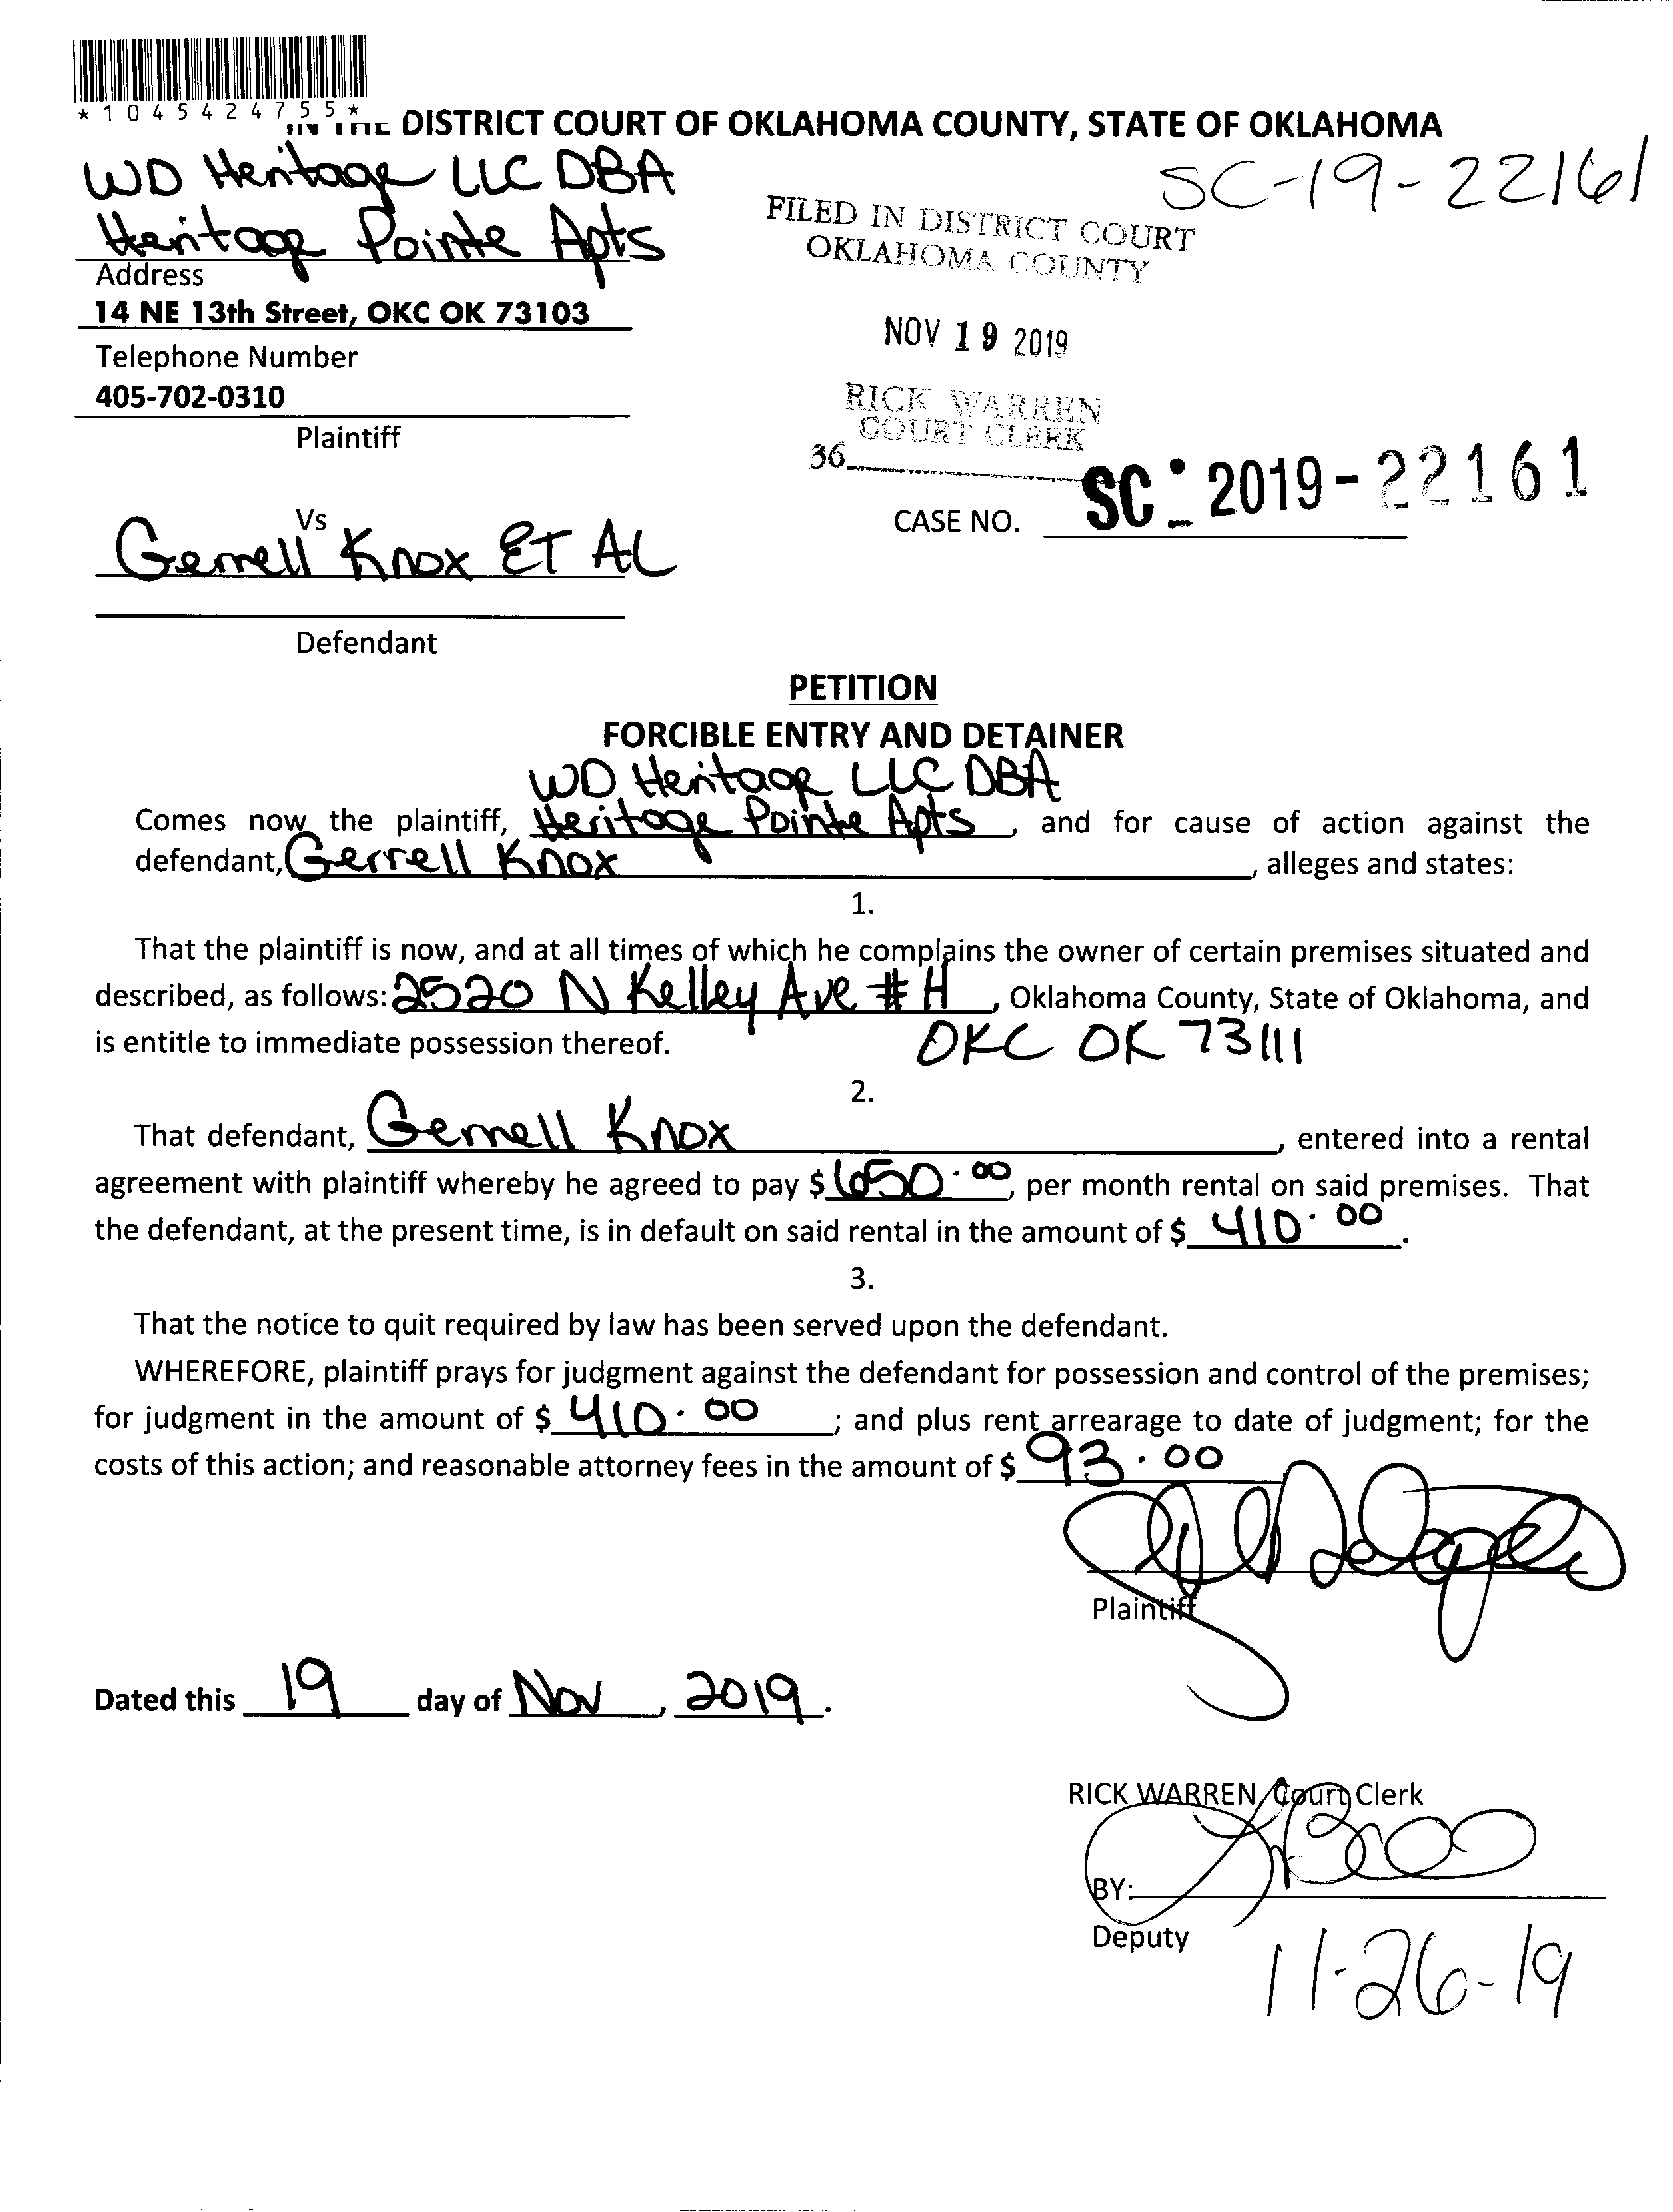 *1045424755*
IN THE DISTRICT COURT OF OKLAHOMA COUNTY, STATE OF OKLAHOMA
WD Heritage LLC DBA
SC-19-22161
Heritage Pointe Apts
FILED IN DISTRICT COURT
OKLAHOMA COUNTY
Address
14 NE 13th Street, OKC OK 73103
NOV 19 2019
Telephone Number
405-702-0310
RICK WARREN
COURT CLERK
Plaintiff
36
SC-2019-22161
Vs
CASE NO.
Gerrell Knox ET AL
Defendant
PETITION
FORCIBLE ENTRY AND DETAINER
WD Heritage LLC DBA
Comes now the plaintiff, Heritage Pointe Apts, and for cause of action against the
defendant, Gerrell Knox, alleges and states:
1.
That the plaintiff is now, and at all times of which he complains the owner of certain premises situated and
described, as follows: 2520 N Kelley Ave # H, Oklahoma County, State of Oklahoma, and
is entitle to immediate possession thereof. OKC OK 73111
2.
That defendant, Gerrell Knox, entered into a rental
agreement with plaintiff whereby he agreed to pay $650.00, per month rental on said premises. That
the defendant, at the present time, is in default on said rental in the amount of $ 410.00.
3.
That the notice to quit required by law has been served upon the defendant.
WHEREFORE, plaintiff prays for judgment against the defendant for possession and control of the premises;
for judgment in the amount of $ 410.00; and plus rent arrearage to date of judgment; for the
costs of this action; and reasonable attorney fees in the amount of $ 93.00
Plaintiff
Dated this 19 day of Nov, 2019.
RICK WARREN, Court Clerk
BY:
Deputy
11-26-19